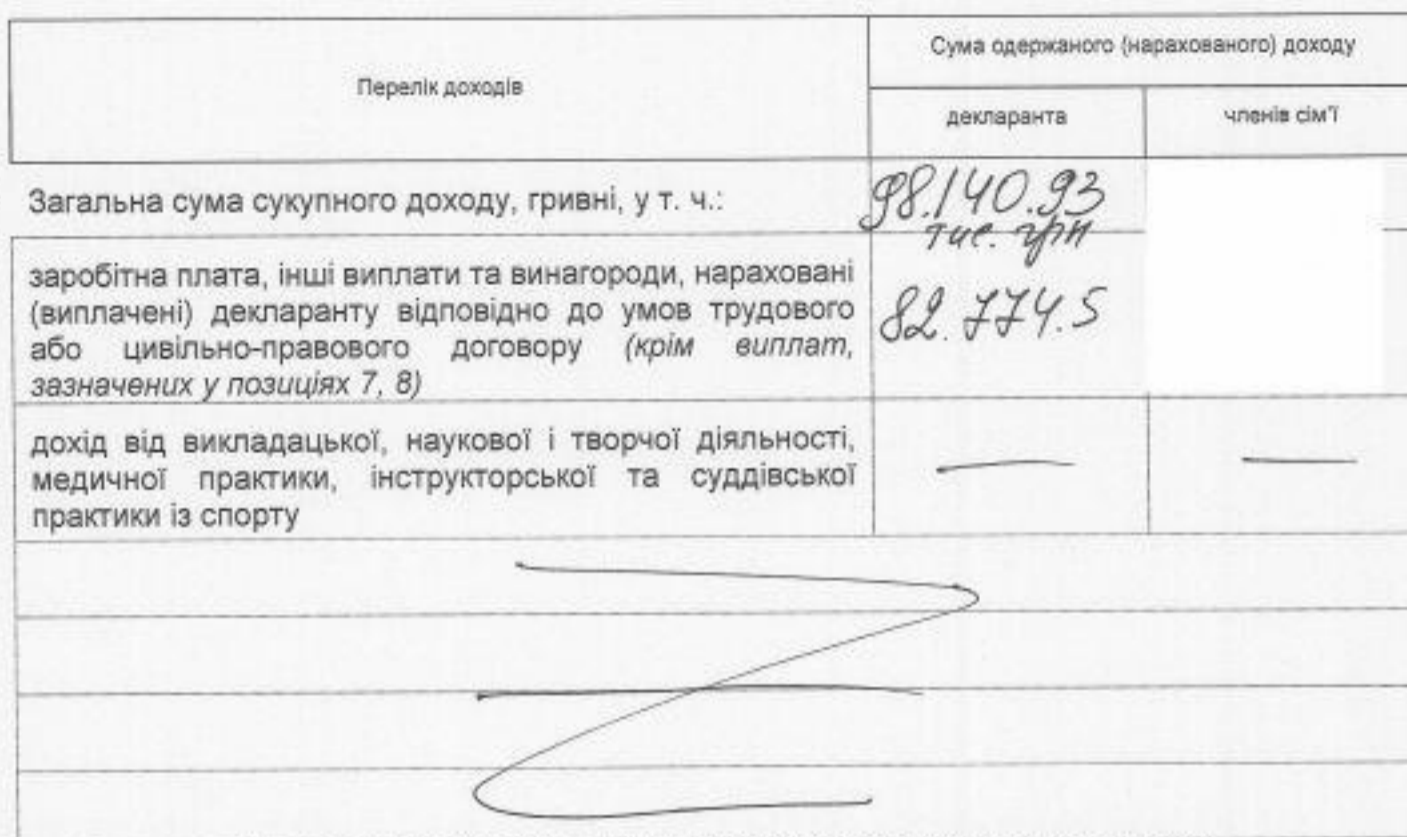 Перелік доходів
Сума одержаного (нарахованого) доходу
декларанта
членів сім'ї
Загальна сума сукупного доходу, гривні, у т. ч.:
98.140.93
тис. грн
заробітна плата, інші виплати та винагороди, нараховані
(виплачені) декларанту відповідно до умов трудового
або цивільно-правового договору (крім виплат,
зазначених у позиціях 7, 8)
82.774.5
дохід від викладацької, наукової і творчої діяльності,
медичної практики, інструкторської та суддівської
практики із спорту
—
—